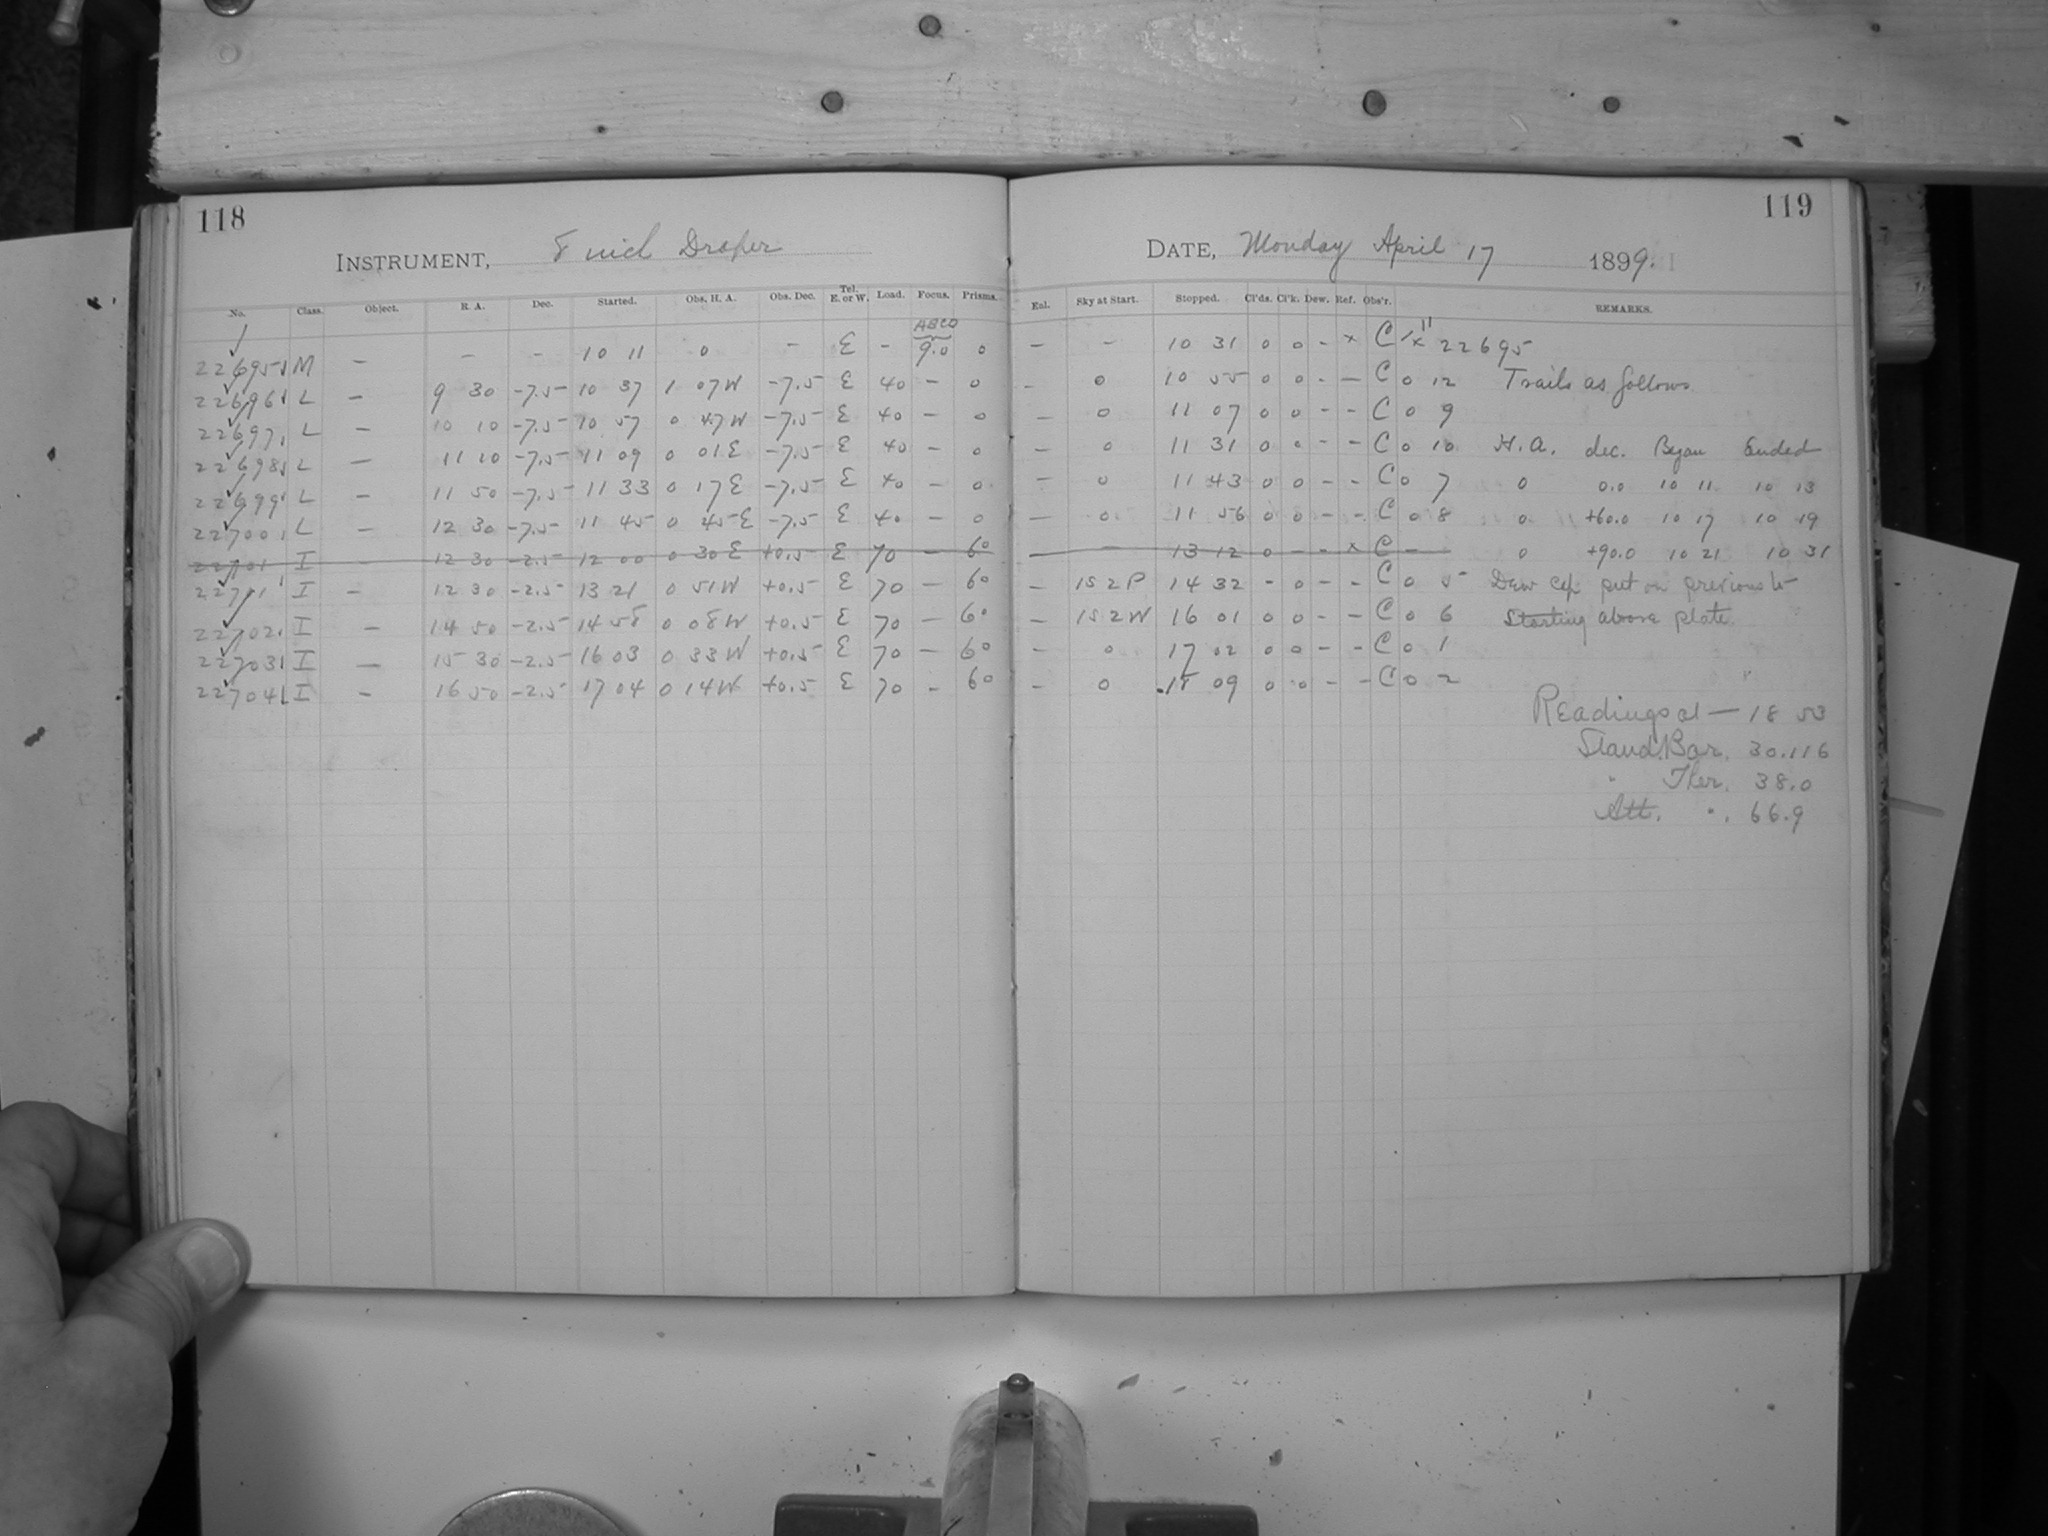 118
INSTRUMENT, 8 inch Draper
No. Class. Object. R. A. Dec. Started. Obs. H. A. Obs. Dec. Tel. E. or W. Load. Focus. Prisms.
ABCD
22695 M — — — 10 11 0 — E — 9.0 0
22696 L — 9 30 -7.5 10 37 1 07W -7.5 E 40 — 0
22697 L — 10 10 -7.5 10 57 0 47W -7.5 E 40 — 0
22698 L — 11 10 -7.5 11 09 0 01E -7.5 E 40 — 0
22699 L — 11 50 -7.5 11 33 0 17E -7.5 E 40 — 0
22700 L — 12 30 -7.5 11 45 0 45E -7.5 E 40 — 0
22701 I — 12 30 -2.5 12 00 0 30E +0.5 E 70 — 60
22701 I — 12 30 -2.5 13 21 0 51W +0.5 E 70 — 60
22702 I — 14 50 -2.5 14 58 0 08W +0.5 E 70 — 60
22703 I — 15 30 -2.5 16 03 0 33W +0.5 E 70 — 60
22704 I — 16 50 -2.5 17 04 0 14W +0.5 E 70 — 60
119
DATE, Monday April 17 1899.
Eal. Sky at Start. Stopped. Cl'ds. Cl'k. Dew. Ref. Obs'r. REMARKS.
— — 10 31 0 0 - x C x 11 22695
— 0 10 55 0 0 - — C 0 12 Trails as follows
— 0 11 07 0 0 - - C 0 9
— 0 11 31 0 0 - - C 0 10 H.A. dec. Began Ended
— 0 11 43 0 0 - - C 0 7 0 0.0 10 11 10 13
— 0 11 56 0 0 - - C 0 8 0 +60.0 10 17 10 19
— — 13 12 0 - - x C — 0 +90.0 10 21 10 31
— 1S2P 14 32 - 0 - - C 0 5 Dew cap put on previous to
— 1S2W 16 01 0 0 - - C 0 6 Starting above plate.
— 0 17 02 0 0 - - C 0 1
— 0 18 09 0 0 - - C 0 2
Readings at — 18 53
Stand. Bar. 30.116
" Ther. 38.0
Att. ". 66.9